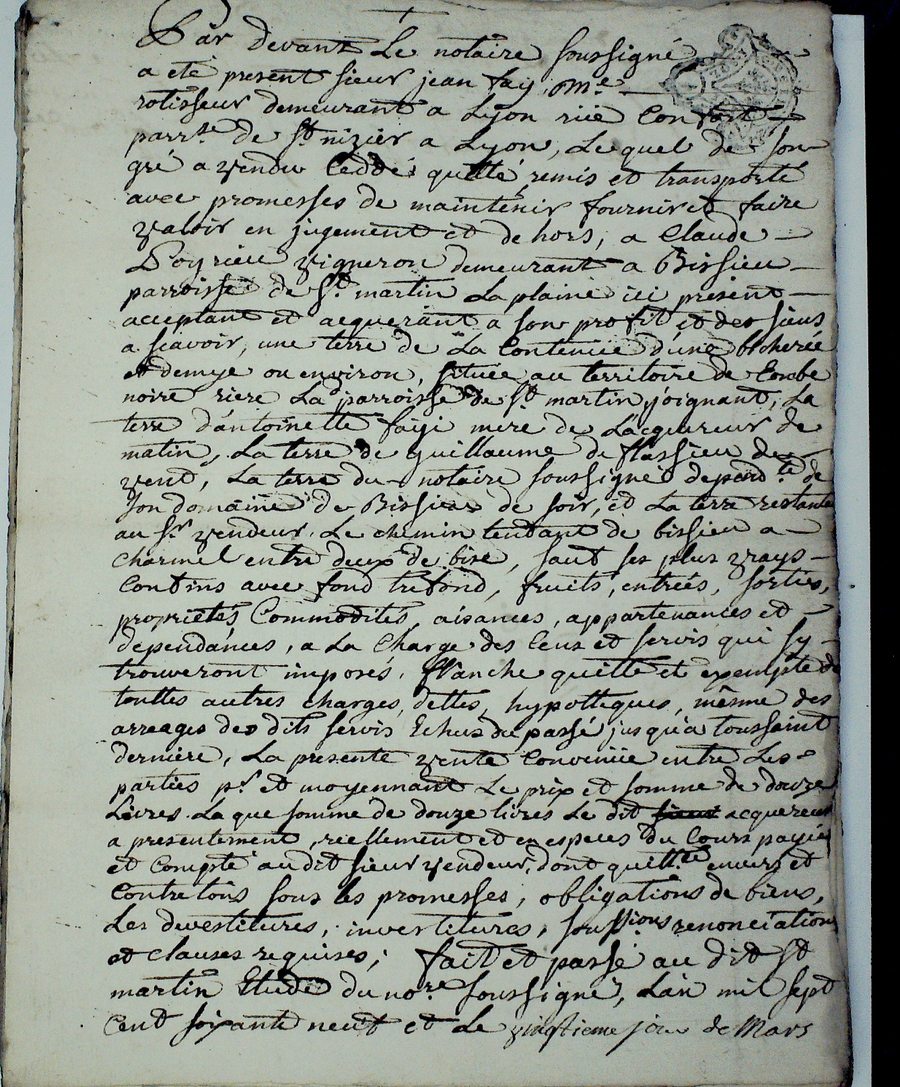 Par devant Le notaire soussigné
a eté present sieur jean fay, me
rotisseur demeurant a Lyon rüe Confort
parrse de St nizier a Lyon, Lequel de son
gré a vendu Ceddé quitté, remis et transporté
avec promesses de maintenir fournir et faire
valoir en jugement et dehors, a Claude
Poyrieu vigneron demeurant a Bissieu
parroisse de St martin La plaine ici present
acceptant et acquerant a son profit et des siens
a scavoir, une terre de La Contenüe d'une bicherée
et demye ou environ, sitüée au territoire de Combe
noire riere La parroisse de St martin joignant, La
terre d'antoinette fayi mere de L'acquereur de
matin, La terre de guillaume de flassieu de
vent, La terre du notaire soussigné depend.te de
son domaine de Bissieu de soir, et La terre restante
au Sr vendeur, Le chemin tendant de bissieu a
Charmel entre deux de bise, sauf ses plus vrays
Confins avec fond trefond, fruits, entrées, sorties,
proprietés Commodités, aisances, appartenances et
dependances, a La Charge des Cens et servis qui sy
trouveront imposés, franche quitte et exempte de
touttes autres charges, dettes, hypotteques, mème des
arreages des dits servis Echus du passé jusqu'a toussaint
derniere, La presente vente Convenüe entre Les
parties pr et moyennant Le prix et somme de douze
Livres. La que somme de douze livres Le dit acquereur
a presentement, reellement et en especes du Cours payée
et Compté audit sieur vendeur, dont quitte envers et
Contre tous sous les promesses, obligations de biens,
Les devestitures, invertitures, soussions renonciations
et clauses requises; fait et passé au dit St
martin Etude du nore soussigné, L'an mil sept
Cent soixante neuf et Le vingtieme jour de Mars